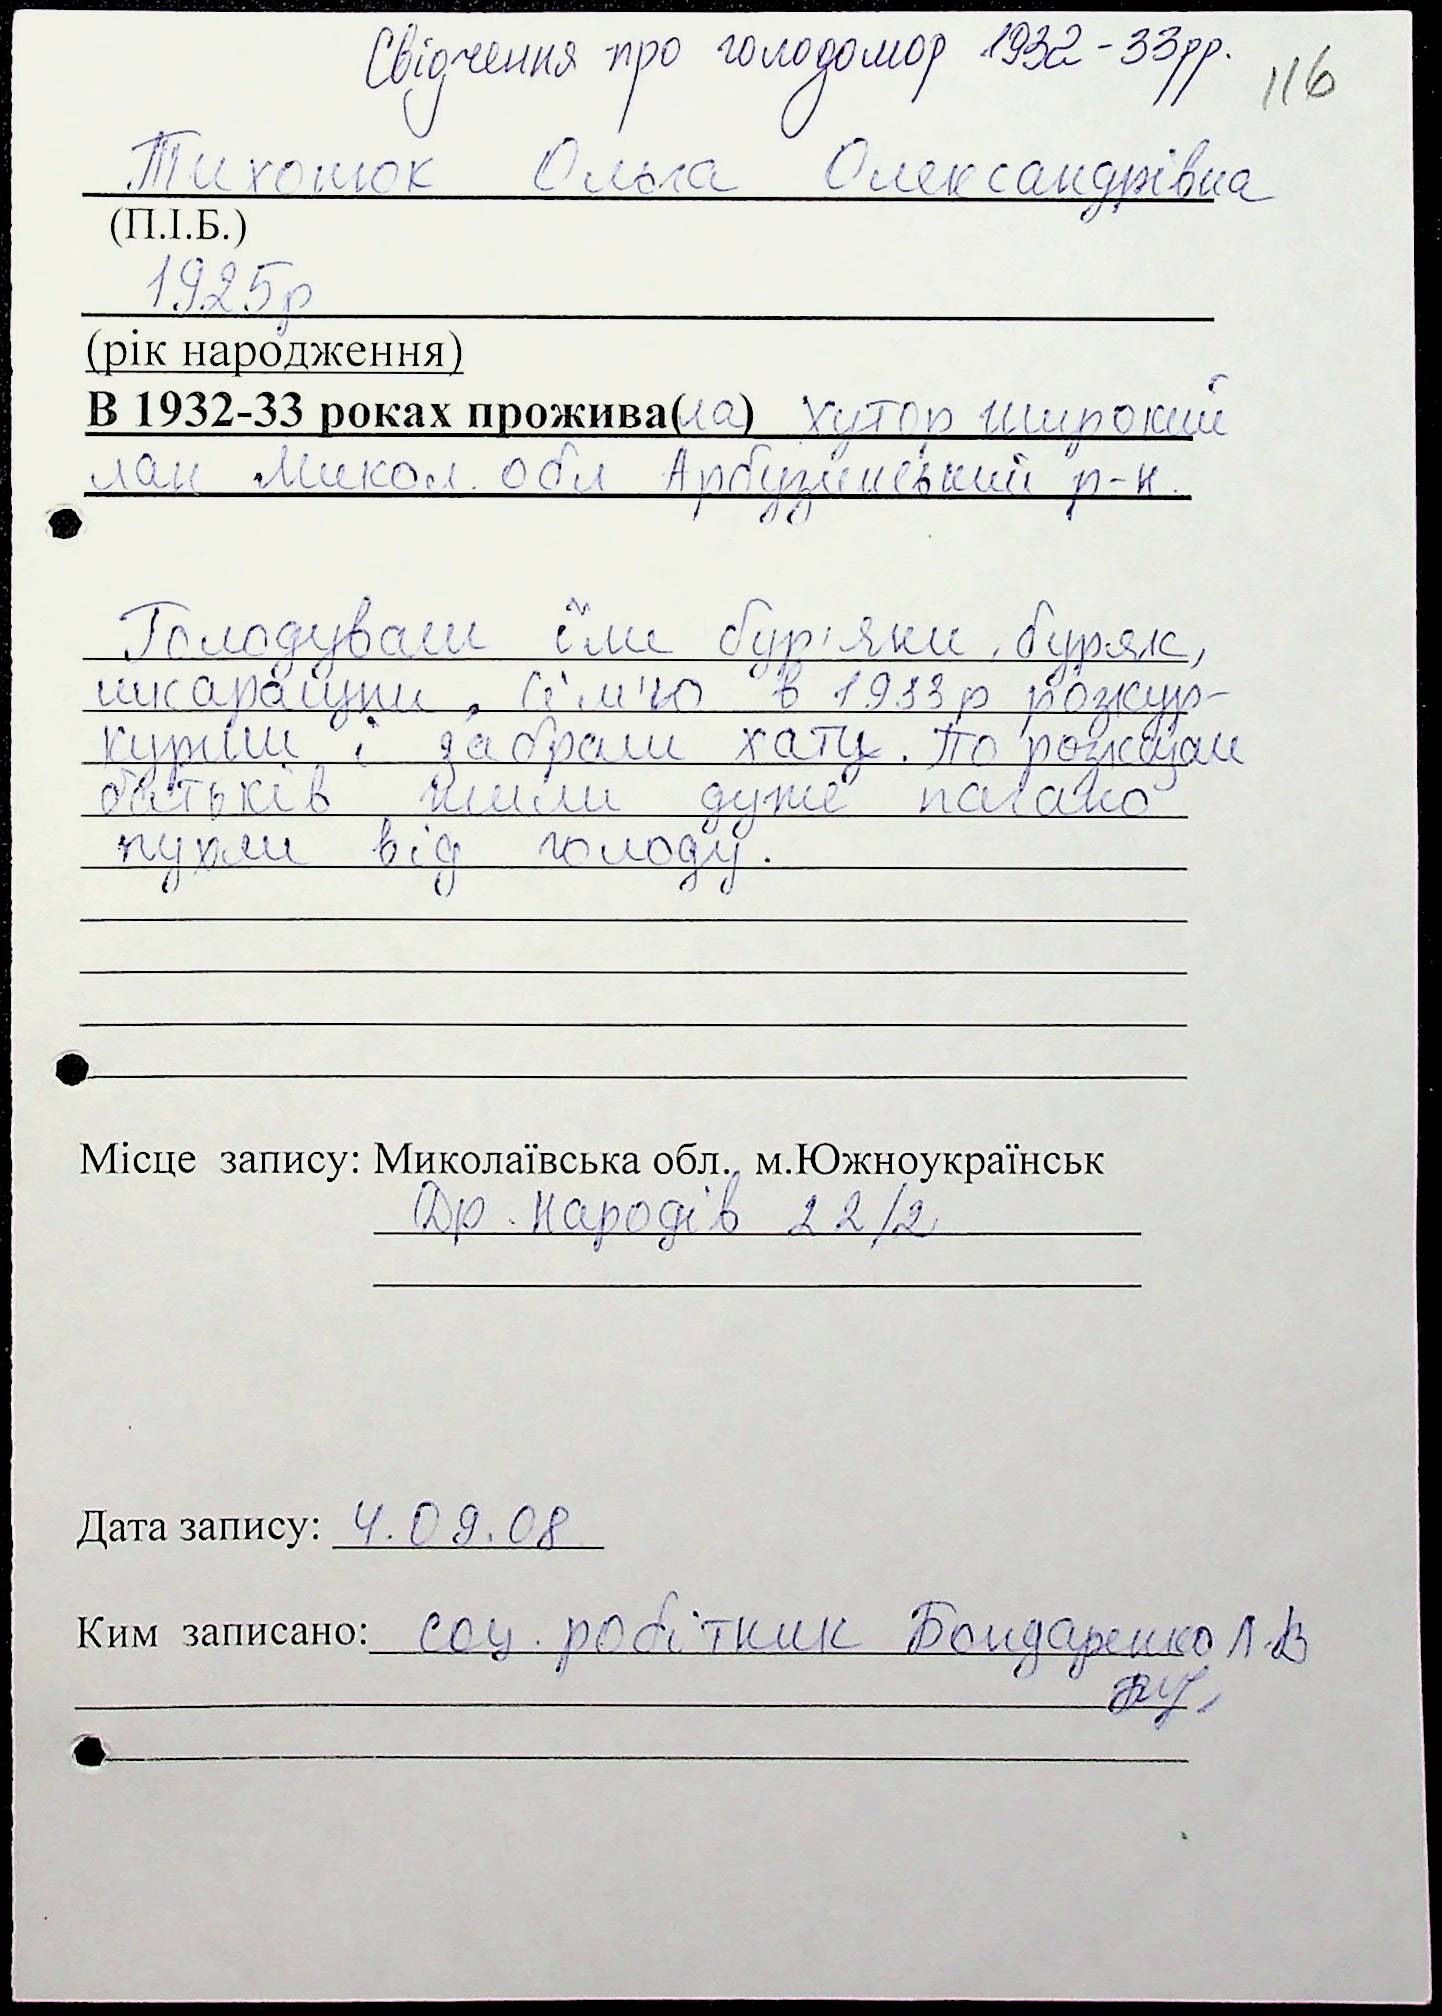 Свідчення про голодомор 1932-33рр.
116
Тихонюк Ольга Олександрівна
(П.І.Б.)
1925р
(рік народження)
В 1932-33 роках прожива(ла) хутор широкий
лан Микол. обл Арбузинський р-н.
Голодували їли бур'яни, буряк,
шкаралупи. Сім'ю в 1933р розкур-
куркули і забрали хату. По розказам
батьків жили дуже погано
пухли від голоду.
Місце запису: Миколаївська обл., м.Южноукраїнськ
Др. Народів 22/2
Дата запису: 4.09.08
Ким записано: соц. робітник Бондаренко Л.В